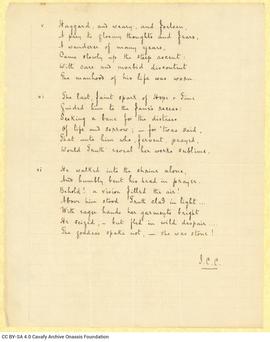 v Haggard, and weary, and forlorn,
A prey to gloomy thoughts and fears,
A wanderer of many years,
Came slowly up the steep ascent;
With care and morbid discontent
The manhood of his life was worn.
vi The last, faint spark of Hope &
Guided him to the fane's recess:
Seeking a balm for the distress
Of life and sorrow; — for 'twas said,
That unto him who fervent prayed,
Would Truth reveal her works sublime.
vii He walked into the shrine alone,
And humbly bent his head in prayer.
Behold! a vision filled the air!
Above him stood Truth clad in light ...
With eager hands her garments bright
He seized; — but fled in wild despair ....
The goddess spake not, — she was stone!
J. C. C.
CC BY-SA 4.0 Cavafy Archive Onassis Foundation